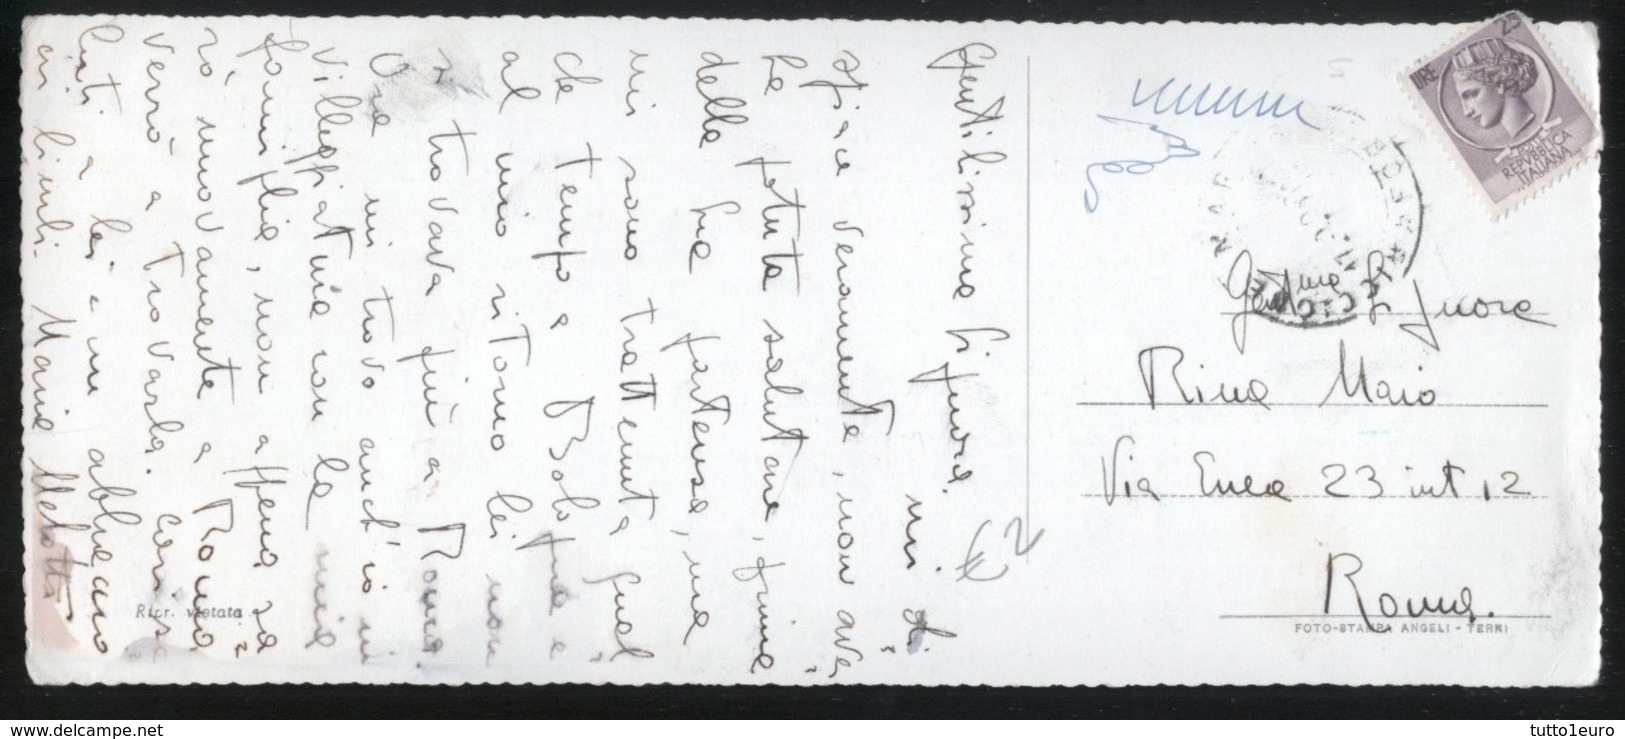 Gentilissima Signora, mi di-
spiace veramente, non aver-
La potuta salutare, prima
della Sua partenza, ma
mi sono trattenuta qual-
che tempo a Bologna e
al mio ritorno lei non
si trovava più a Roma.
Ora mi trovo anch'io in
villeggiatura con la mia
famiglia, non appena sa-
rò, nuovamente a Roma
verrò a trovarla. Cari sa-
luti a lei e un abbraccio
Maria
Ripr. vietata
€2
LIRE 25
POSTE
REPVBBLICA
ITALIANA
Gent.ma Signora
Rina Maio
Via Enea 23 int 12
Roma.
FOTO-STAMPA ANGELI - TERNI
tutto1euro